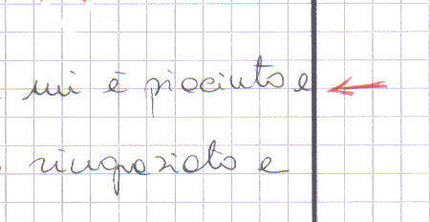 mi è piaciuto e
ringraziato e